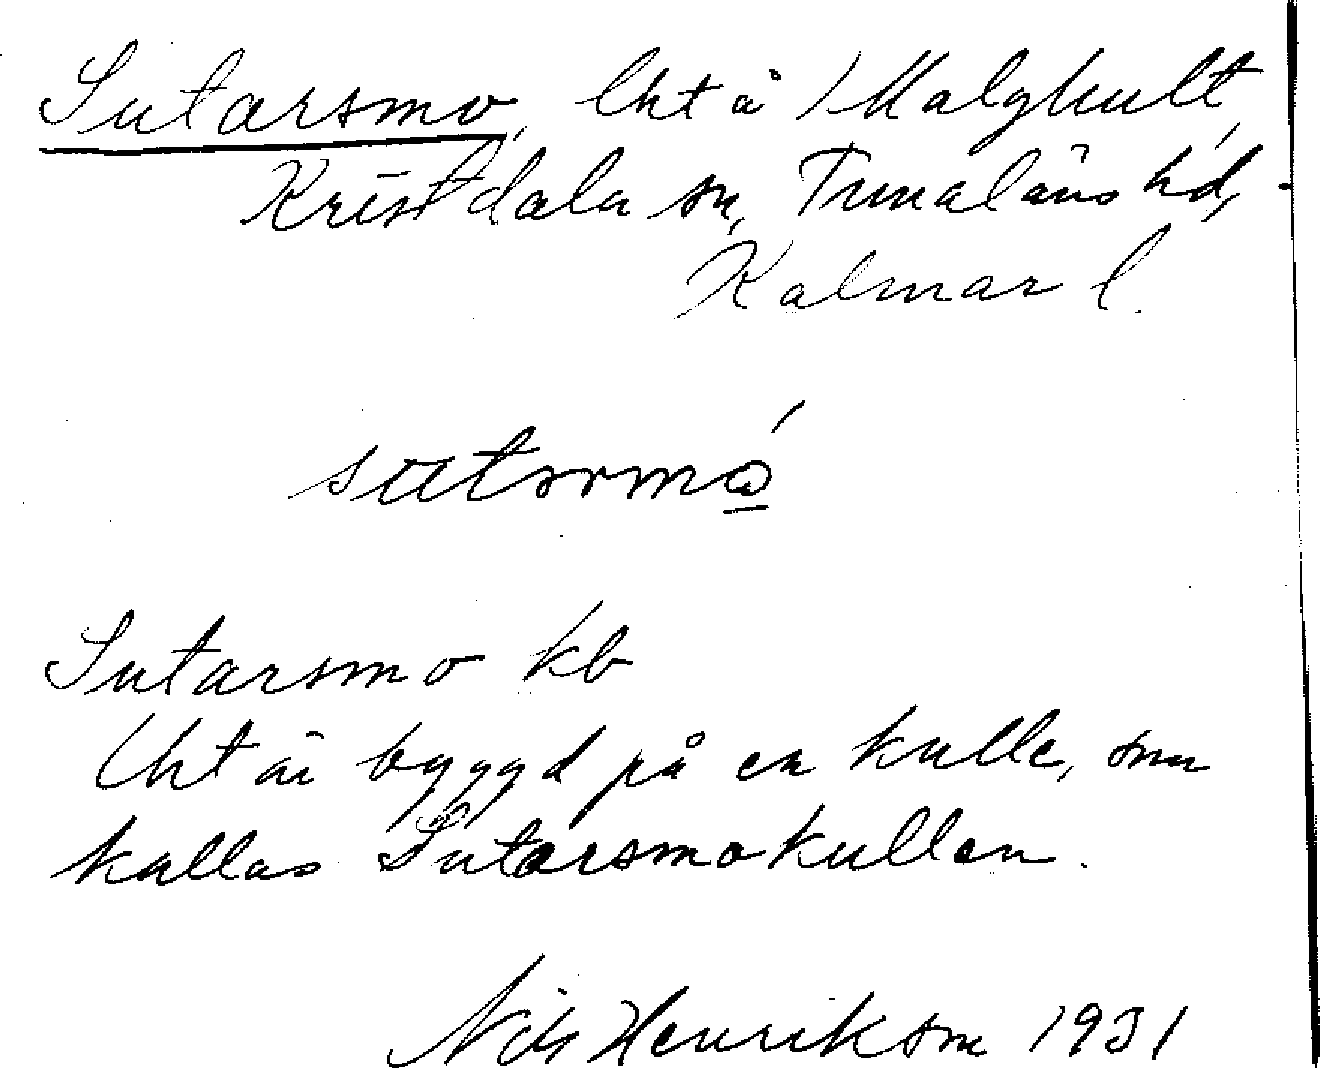 Sutarsmo, lht å 1 Malghult,
Kristdala sn, Tunaläns hd,
Kalmar l.
Sutarsmo kb
Lht är byggd på en kulle, som
kallas Sutarsmokullen.
Nils Henriksson 1931